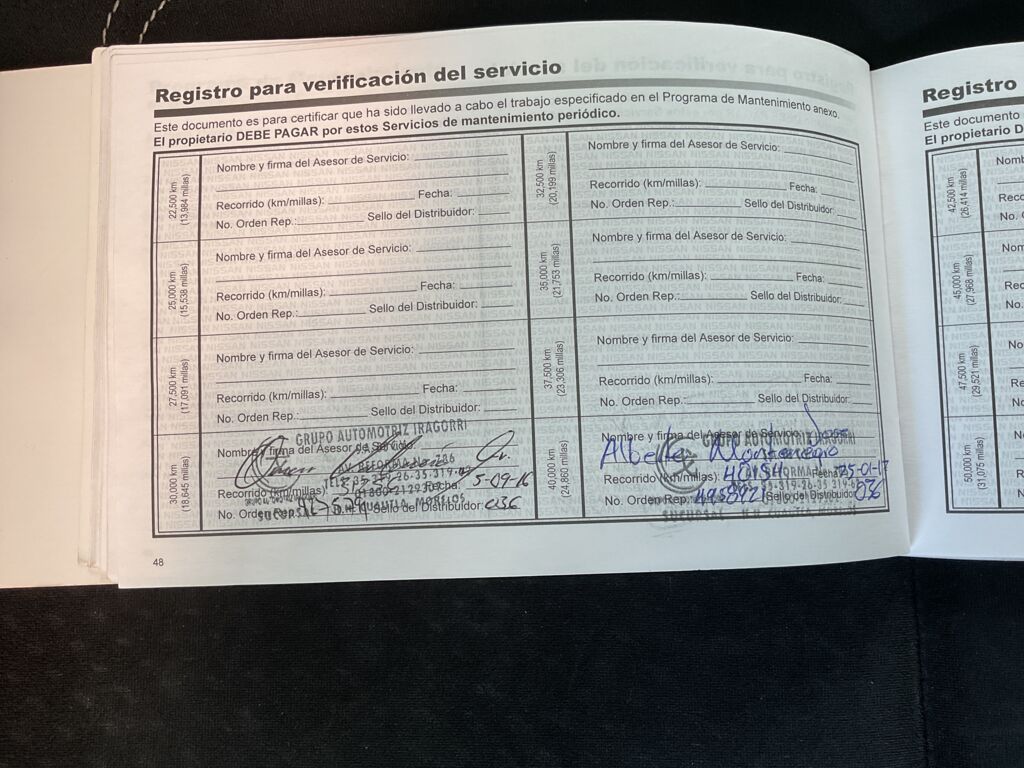 Registro para verificación del servicio
Este documento es para certificar que ha sido llevado a cabo el trabajo especificado en el Programa de Mantenimiento anexo.
El propietario DEBE PAGAR por estos Servicios de mantenimiento periódico.
22,500 km
(13,984 millas)
Nombre y firma del Asesor de Servicio:
Recorrido (km/millas): Fecha:
No. Orden Rep.: Sello del Distribuidor:
25,000 km
(15,538 millas)
Nombre y firma del Asesor de Servicio:
Recorrido (km/millas): Fecha:
No. Orden Rep.: Sello del Distribuidor:
27,500 km
(17,091 millas)
Nombre y firma del Asesor de Servicio:
Recorrido (km/millas): Fecha:
No. Orden Rep.: Sello del Distribuidor:
30,000 km
(18,645 millas)
GRUPO AUTOMOTRIZ IRAGORRI
Nombre y firma del Asesor de Servicio:
AV. REFORMA No. 786
Recorrido (km/millas): Fecha: 5-09-16
No. Orden Rep. Sello del Distribuidor: 036
SUCURSAL H.H. CUAUTLA, MORELOS
32,500 km
(20,199 millas)
Nombre y firma del Asesor de Servicio:
Recorrido (km/millas): Fecha:
No. Orden Rep.: Sello del Distribuidor:
35,000 km
(21,753 millas)
Nombre y firma del Asesor de Servicio:
Recorrido (km/millas): Fecha:
No. Orden Rep.: Sello del Distribuidor:
37,500 km
(23,306 millas)
Nombre y firma del Asesor de Servicio:
Recorrido (km/millas): Fecha:
No. Orden Rep.: Sello del Distribuidor:
40,000 km
(24,860 millas)
Nombre y firma del Asesor de Servicio:
GRUPO AUTOMOTRIZ IRAGORRI
Alberto Montenegro
Recorrido (km/millas) 25-01-17
No. Orden Rep. Sello del Distribuidor: 036
SUCURSAL H.H. CUAUTLA, MORELOS
48
Registro
Este documento
El propietario D
42,500 km
(26,414 millas)
45,000 km
(27,968 millas)
47,500 km
(29,521 millas)
50,000 km
(31,075 millas)